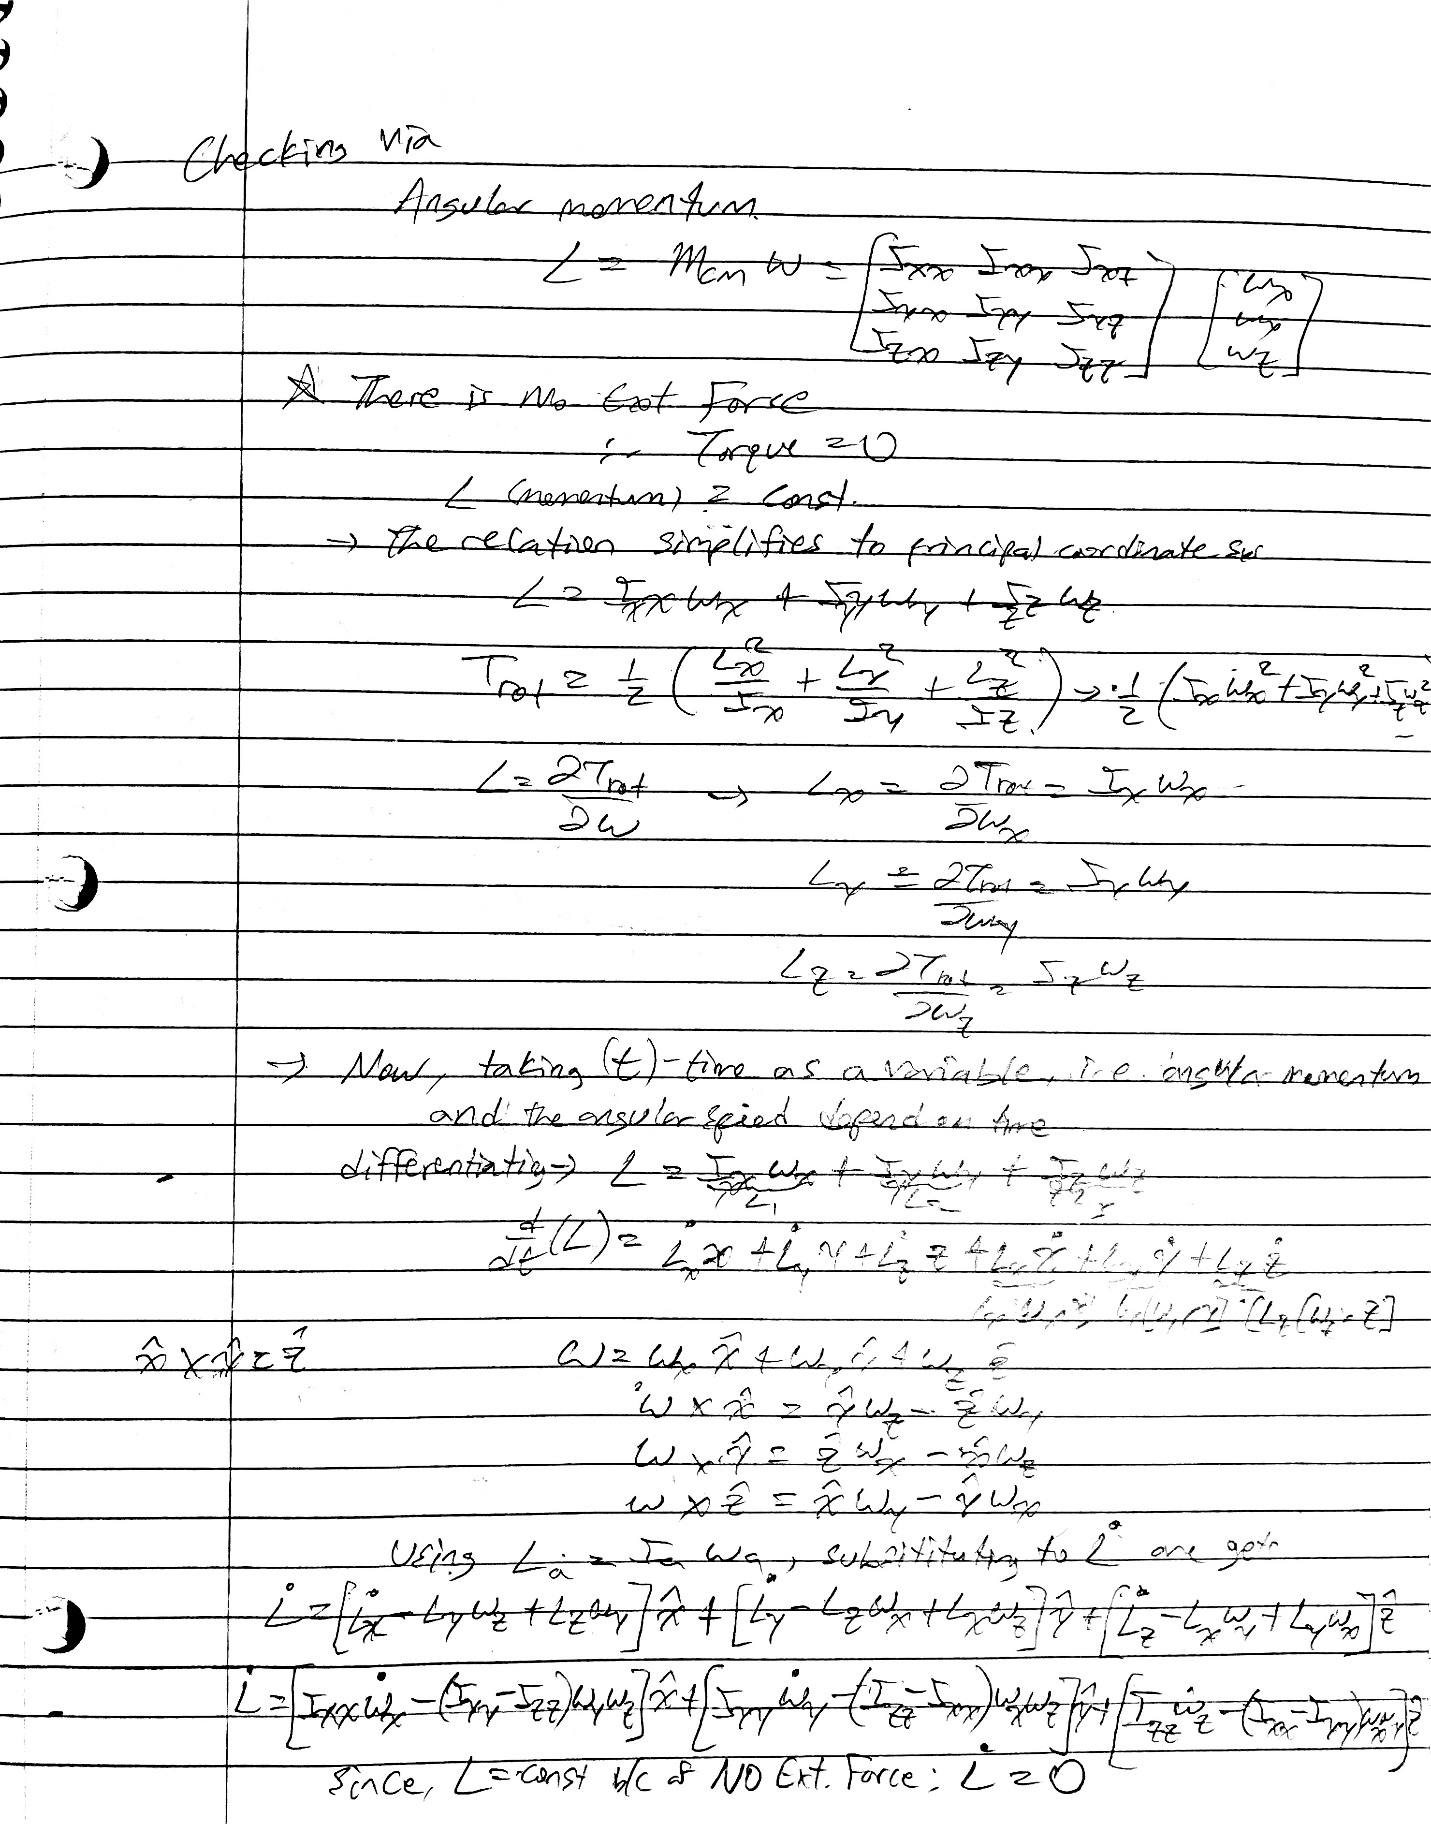 Checking via
Angular momentum
L = M_cm ω = [I_xx I_xy I_xz; I_yx I_yy I_yz; I_zx I_zy I_zz] [ω_x; ω_y; ω_z]
☆ There is No Ext Force
∴ Torque = 0
L (momentum) = const.
→ the relation simplifies to principal coordinate sys
L = I_xx ω_x + I_yy ω_y + I_zz ω_z
T_rot = 1/2 (L_x²/I_x + L_y²/I_y + L_z²/I_z) → 1/2 (I_x ω_x² + I_y ω_y² + I_z ω_z²
L = ∂T_rot/∂ω → L_x = ∂T_rot/∂ω_x = I_x ω_x
L_y = ∂T_rot/∂ω_y = I_y ω_y
L_z = ∂T_rot/∂ω_z = I_z ω_z
→ Now, taking (t)-time as a variable, i.e. angular momentum
and the angular speed depend on time
differentiating→ L = I_xx ω_x + I_yy ω_y + I_zz ω_z
d/dt (L) = L̇_x x + L̇_y y + L̇_z z + L_x ẋ + L_y ẏ + L_z ż
[L_z(ω_z × z]
x̂ × ŷ = ẑ
ω = ω_x x̂ + ω_y ŷ + ω_z ẑ
ω × x̂ = ŷ ω_z - ẑ ω_y
ω × ŷ = ẑ ω_x - x̂ ω_z
ω × ẑ = x̂ ω_y - ŷ ω_x
Using L_a = I_a ω_a, substituting to L̇ one gets
L̇ = [L̇_x - L_y ω_z + L_z ω_y] x̂ + [L̇_y - L_z ω_x + L_x ω_z] ŷ + [L̇_z - L_x ω_y + L_y ω_x] ẑ
L̇ = [I_xx ω̇_x - (I_yy - I_zz) ω_y ω_z] x̂ + [I_yy ω̇_y - (I_zz - I_xx) ω_x ω_z] ŷ + [I_zz ω̇_z - (I_xx - I_yy) ω_x ω_y] ẑ
since, L = const b/c of NO Ext. Force; L̇ = 0